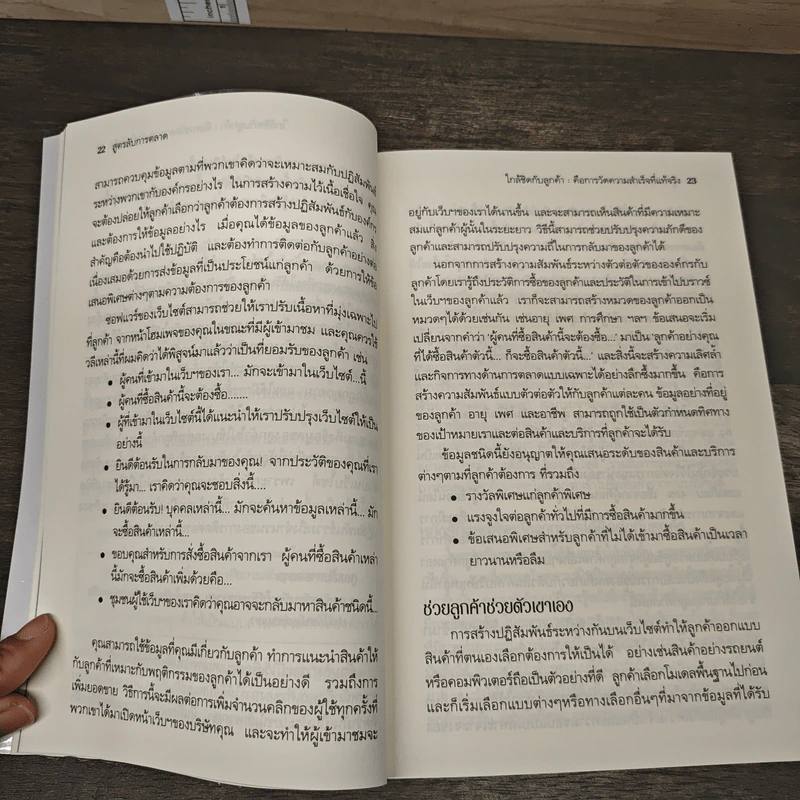 inches
22 สูตรลับการตลาด
สามารถควบคุมข้อมูลตามที่พวกเขาคิดว่าจะเหมาะสมกับปฏิสัมพันธ์
ระหว่างพวกเขากับองค์กรอย่างไร ในการสร้างความไว้เนื้อเชื่อใจ คุณ
จะต้องปล่อยให้ลูกค้าเลือกว่าลูกค้าต้องการสร้างปฏิสัมพันธ์กับองค์กร
และต้องการให้ข้อมูลอย่างไร เมื่อคุณได้ข้อมูลของลูกค้าแล้ว สิ่ง
สำคัญคือต้องนำไปใช้ปฏิบัติ และต้องทำการติดต่อกับลูกค้าอย่างต่อ
เนื่องเสมอด้วยการส่งข้อมูลที่เป็นประโยชน์แก่ลูกค้า ด้วยการให้ข้อ
เสนอพิเศษต่างๆตามความต้องการของลูกค้า
ซอฟแวร์ของเว็บไซต์สามารถช่วยให้เราปรับเนื้อหาที่มุ่งเฉพาะไป
ที่ลูกค้า จากหน้าโฮมเพจของคุณในขณะที่มีผู้เข้ามาชม และคุณควรใช้
วลีเหล่านี้ที่ผมคิดว่าได้พิสูจน์มาแล้วว่าเป็นที่ยอมรับของลูกค้า เช่น
• ผู้คนที่เข้ามาในเว็บฯของเรา... มักจะเข้ามาในเว็บไซต์...นี้
• ผู้คนที่ซื้อสินค้านี้จะต้องซื้อ.......
• ผู้ที่เข้ามาในเว็บไซต์นี้ได้แนะนำให้เราปรับปรุงเว็บไซต์ให้เป็น
อย่างนี้
• ยินดีต้อนรับในการกลับมาของคุณ! จากประวัติของคุณที่เรา
ได้รู้มา... เราคิดว่าคุณจะชอบสิ่งนี้....
• ยินดีต้อนรับ! บุคคลเหล่านี้... มักจะค้นหาข้อมูลเหล่านี้... มัก
จะซื้อสินค้าเหล่านี้...
• ขอบคุณสำหรับการสั่งซื้อสินค้าจากเรา ผู้คนที่ซื้อสินค้าเหล่า
นี้มักจะซื้อสินค้าเพิ่มด้วยคือ...
• ชุมชนผู้ใช้เว็บฯของเราคิดว่าคุณอาจจะกลับมาหาสินค้าชนิดนี้...
คุณสามารถใช้ข้อมูลที่คุณมีเกี่ยวกับลูกค้า ทำการแนะนำสินค้าให้
กับลูกค้าที่เหมาะกับพฤติกรรมของลูกค้าได้เป็นอย่างดี รวมถึงการ
เพิ่มยอดขาย วิธีการนี้จะมีผลต่อการเพิ่มจำนวนคลิกของผู้ใช้ทุกครั้งที่
พวกเขาได้มาเปิดหน้าเว็บฯของบริษัทคุณ และจะทำให้ผู้เข้ามาชมจะ
ใกล้ชิดกับลูกค้า : คือการวัดความสำเร็จที่แท้จริง 23
อยู่กับเว็บฯของเราได้นานขึ้น และจะสามารถเห็นสินค้าที่มีความเหมาะ
สมแก่ลูกค้าผู้นั้นในระยะยาว วิธีนี้สามารถช่วยปรับปรุงความภักดีของ
ลูกค้าและสามารถปรับปรุงความถี่ในการกลับมาของลูกค้าได้
นอกจากการสร้างความสัมพันธ์ระหว่างตัวต่อตัวขององค์กรกับ
ลูกค้าโดยเรารู้ถึงประวัติการซื้อของลูกค้าและประวัติในการเข้าไปบราวซ์
ในเว็บฯของลูกค้าแล้ว เราก็จะสามารถสร้างหมวดของลูกค้าออกเป็น
หมวดๆได้ด้วยเช่นกัน เช่นอายุ เพศ การศึกษา ฯลฯ ข้อเสนอจะเริ่ม
เปลี่ยนจากคำว่า 'ผู้คนที่ซื้อสินค้านี้จะต้องซื้อ...' มาเป็น 'ลูกค้าอย่างคุณ
ที่ได้ซื้อสินค้าตัวนี้... ก็จะซื้อสินค้าตัวนี้...' และสิ่งนี้จะสร้างความเลิศล้ำ
และกิจการทางด้านการตลาดแบบเฉพาะได้อย่างลึกซึ้งมากขึ้น คือการ
สร้างความสัมพันธ์แบบตัวต่อตัวให้กับลูกค้าแต่ละคน ข้อมูลอย่างที่อยู่
ของลูกค้า อายุ เพศ และอาชีพ สามารถถูกใช้เป็นตัวกำหนดทิศทาง
ของเป้าหมายเราและต่อสินค้าและบริการที่ลูกค้าจะได้รับ
ข้อมูลชนิดนี้ยังอนุญาตให้คุณเสนอระดับของสินค้าและบริการ
ต่างๆตามที่ลูกค้าต้องการ ที่รวมถึง
• รางวัลพิเศษแก่ลูกค้าพิเศษ
• แรงจูงใจต่อลูกค้าทั่วไปที่มีการซื้อสินค้ามากขึ้น
• ข้อเสนอพิเศษสำหรับลูกค้าที่ไม่ได้เข้ามาซื้อสินค้าเป็นเวลา
ยาวนานหรือลืม
ช่วยลูกค้าช่วยตัวเขาเอง
การสร้างปฏิสัมพันธ์ระหว่างกันบนเว็บไซต์ทำให้ลูกค้าออกแบบ
สินค้าที่ตนเองเลือกต้องการให้เป็นได้ อย่างเช่นสินค้าอย่างรถยนต์
หรือคอมพิวเตอร์ถือเป็นตัวอย่างที่ดี ลูกค้าเลือกโมเดลพื้นฐานไปก่อน
และก็เริ่มเลือกแบบต่างๆหรือทางเลือกอื่นๆที่มาจากข้อมูลที่ได้รับ